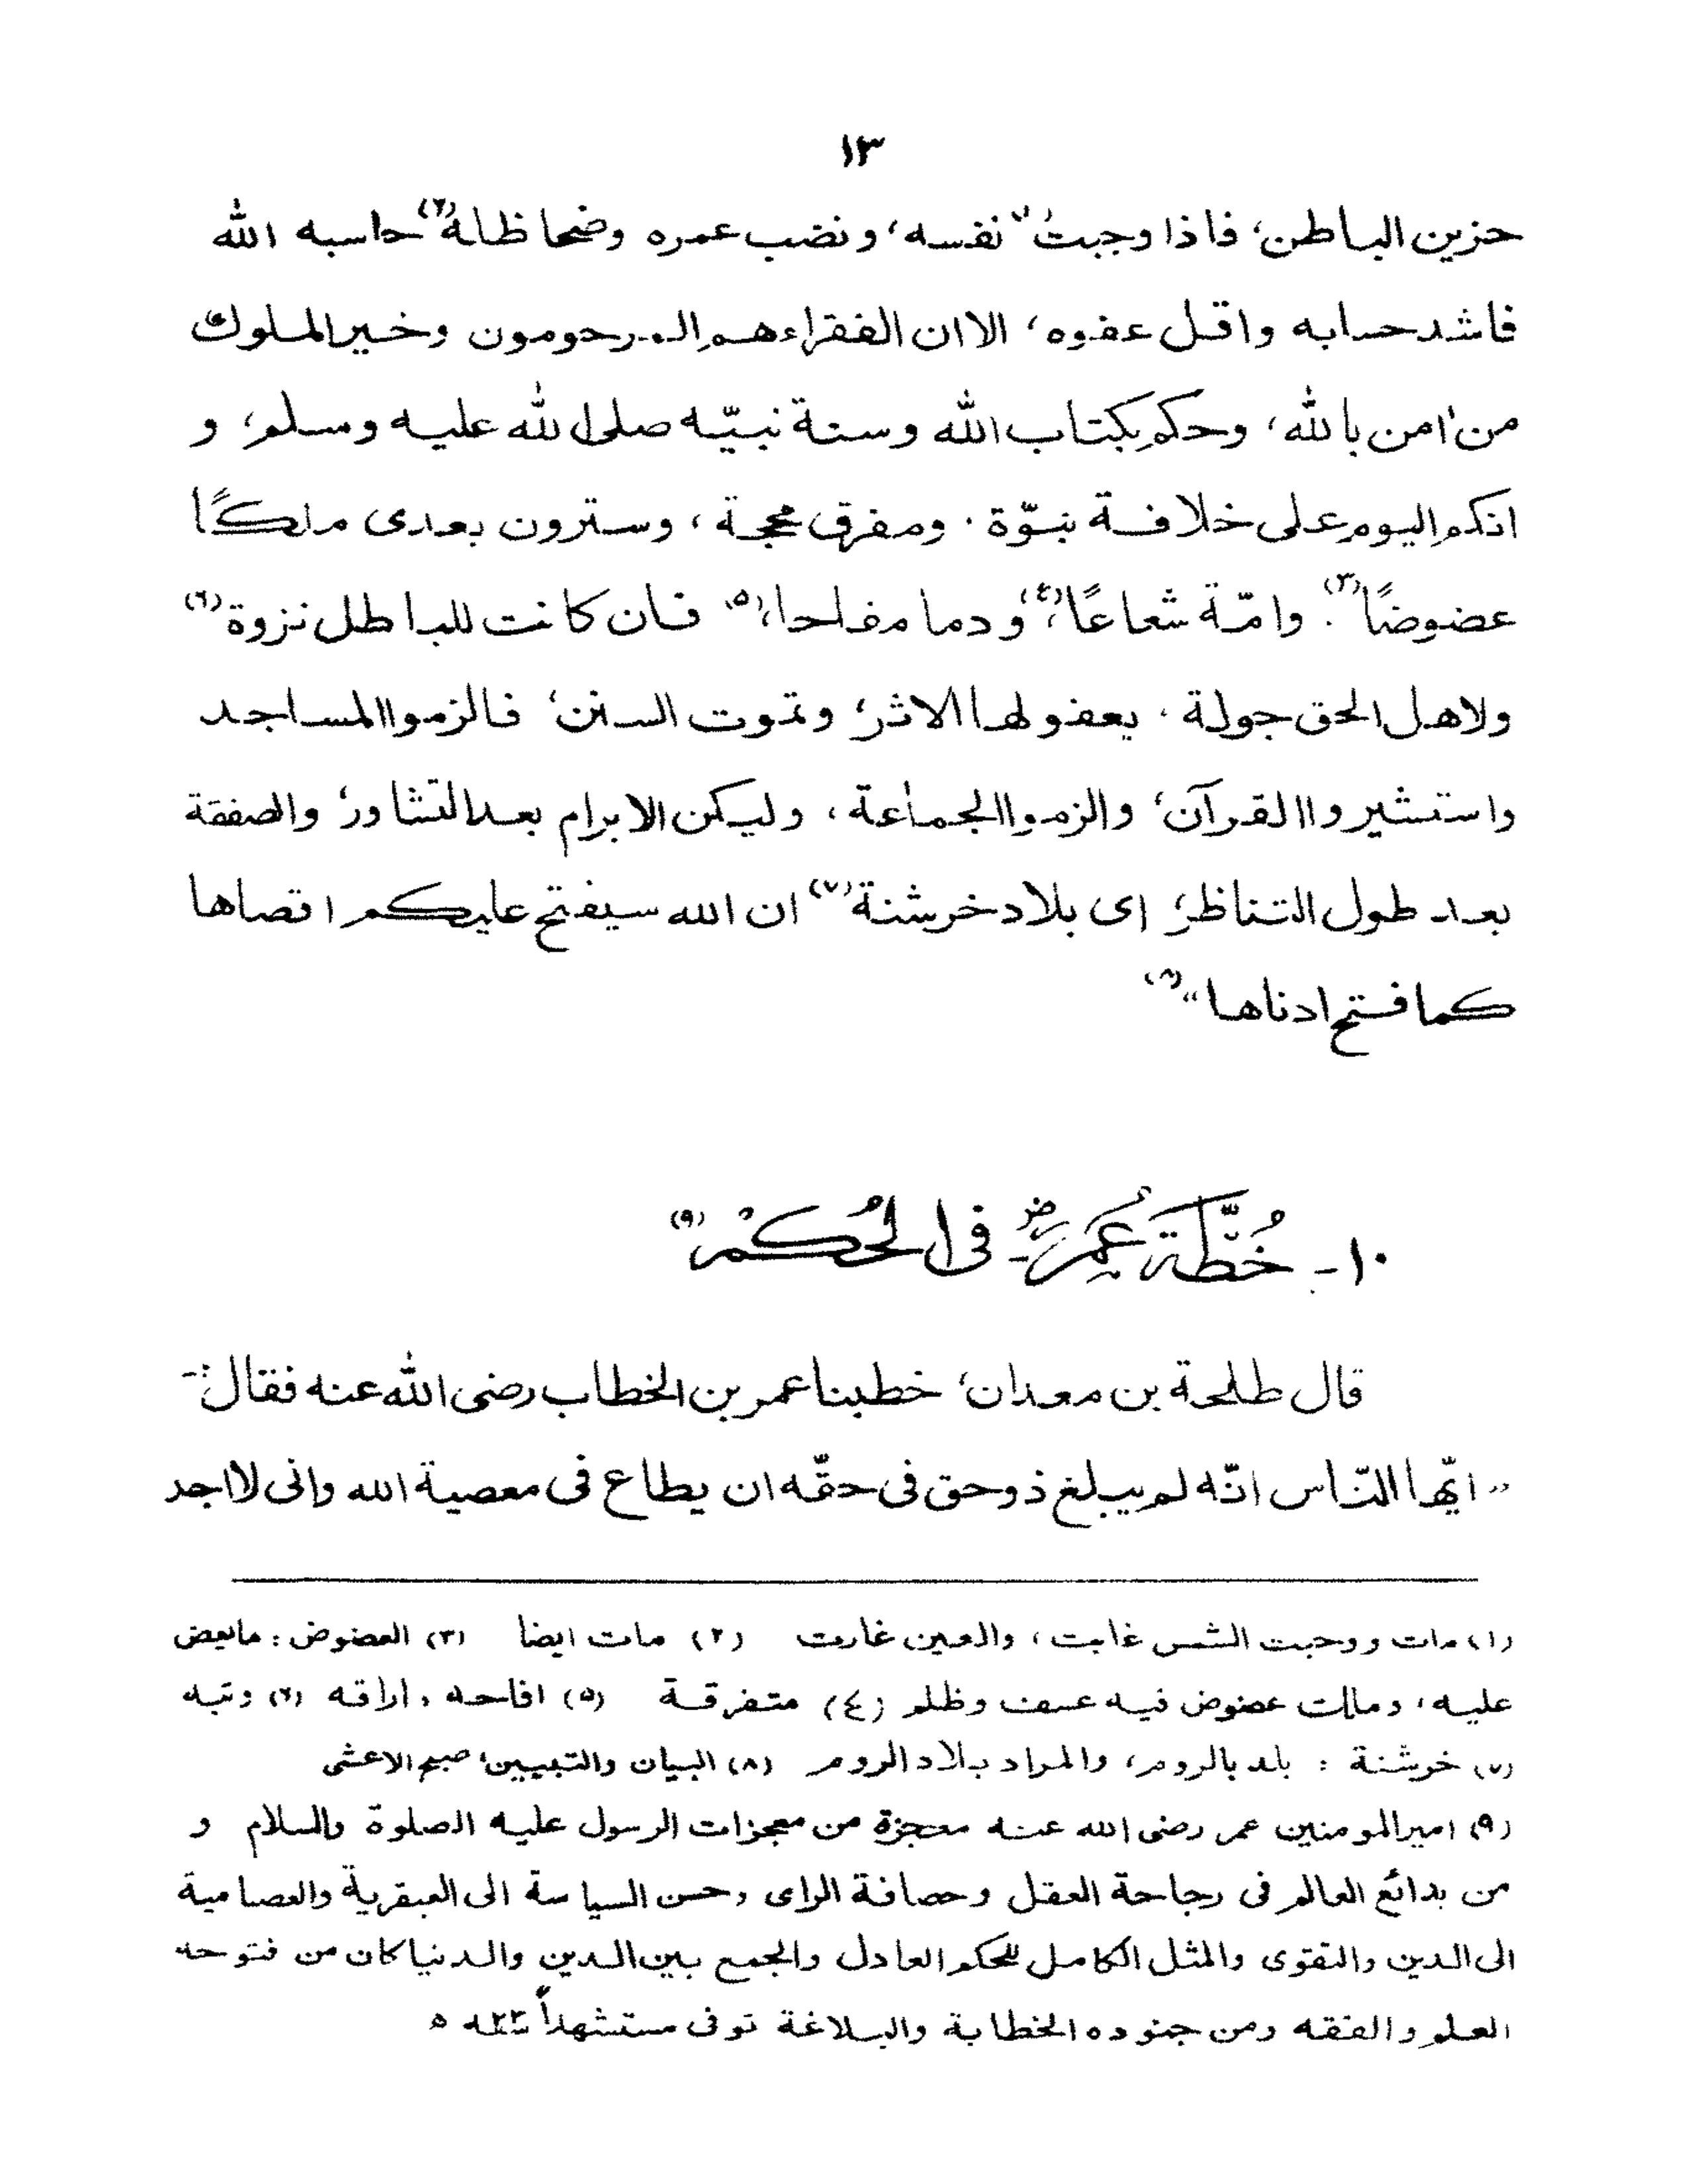 ١٣
حزين الباطن، فاذا وجبت(١) نفسه، ونضب عمره وضحا ظله(٢) حاسبه الله
فاشد حسابه واقل عفوه، الا ان الفقراء هم المرحومون وخير الملوك
من اٰمن بالله، وحكم بكتاب الله وسنة نبيّه صلى الله عليه وسلم، و
انكم اليوم على خلافة نبوّة، ومفرق محجة، وسترون بعدى ملكًا
عضوضًا(٣)، وامّة شعاعًا(٤)، ودما مفاحا،(٥) فان كانت للباطل نزوة(٦)
ولاهل الحق جولة، يعفو لها الاثر، وتموت السنن، فالزموا المساجد
واستشيروا القرآن، والزموا الجماعة، وليكن الابرام بعد التشاور، والصفقة
بعد طول التناظر، اى بلاد خرشنة(٧) ان الله سيفتح عليكم اقصاها
كما فتح ادناها"(٨)
١٠- خُطَّة عُمَرؓ فى الحُكْم(٩)
قال طلحة بن معدان، خطبنا عمر بن الخطاب رضى الله عنه فقال:-
"ايّها النّاس انّه لم يبلغ ذو حق فى حقّه ان يطاع فى معصية الله وانى لا اجد
(١) مات ووجبت الشمس غابت، والعين غارت (٢) مات ايضا (٣) العضوض: مايعض
عليه، وملك عضوض فيه عسف وظلم (٤) متفرقة (٥) افاحه، اراقه (٦) وثبه
(٧) خرشنة: بلد بالروم، والمراد بلاد الروم (٨) البيان والتبيين، صبح الاعشى
(٩) امير المومنين عمر رضى الله عنه معجزة من معجزات الرسول عليه الصلوة والسلام و
من بدائع العالم فى رجاحة العقل وحصافة الراى وحسن السياسة الى العبقرية والعصامية
الى الدين والتقوى والمثل الكامل للحكم العادل والجمع بين الدين والدنيا كان من فتوحه
العلم والفقه ومن جنوده الخطابة والبلاغة توفى مستشهداً سنة ه